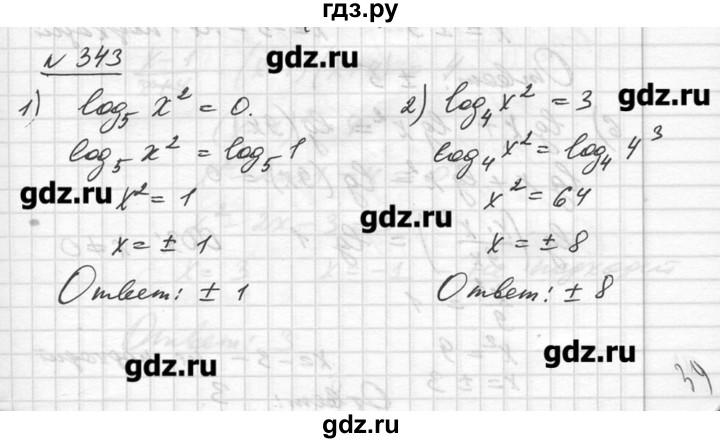 гдз.ру
№ 343
gdz.ru
1) log₅ x² = 0.
log₅ x² = log₅ 1
gdz.ru
x² = 1
x = ± 1
Ответ: ± 1
gdz.ru
2) log₄ x² = 3
gdz.ru
log₄ x² = log₄ 4³
x² = 64
gdz.ru
x = ± 8
Ответ: ± 8
gdz.ru
39
gdz.ru